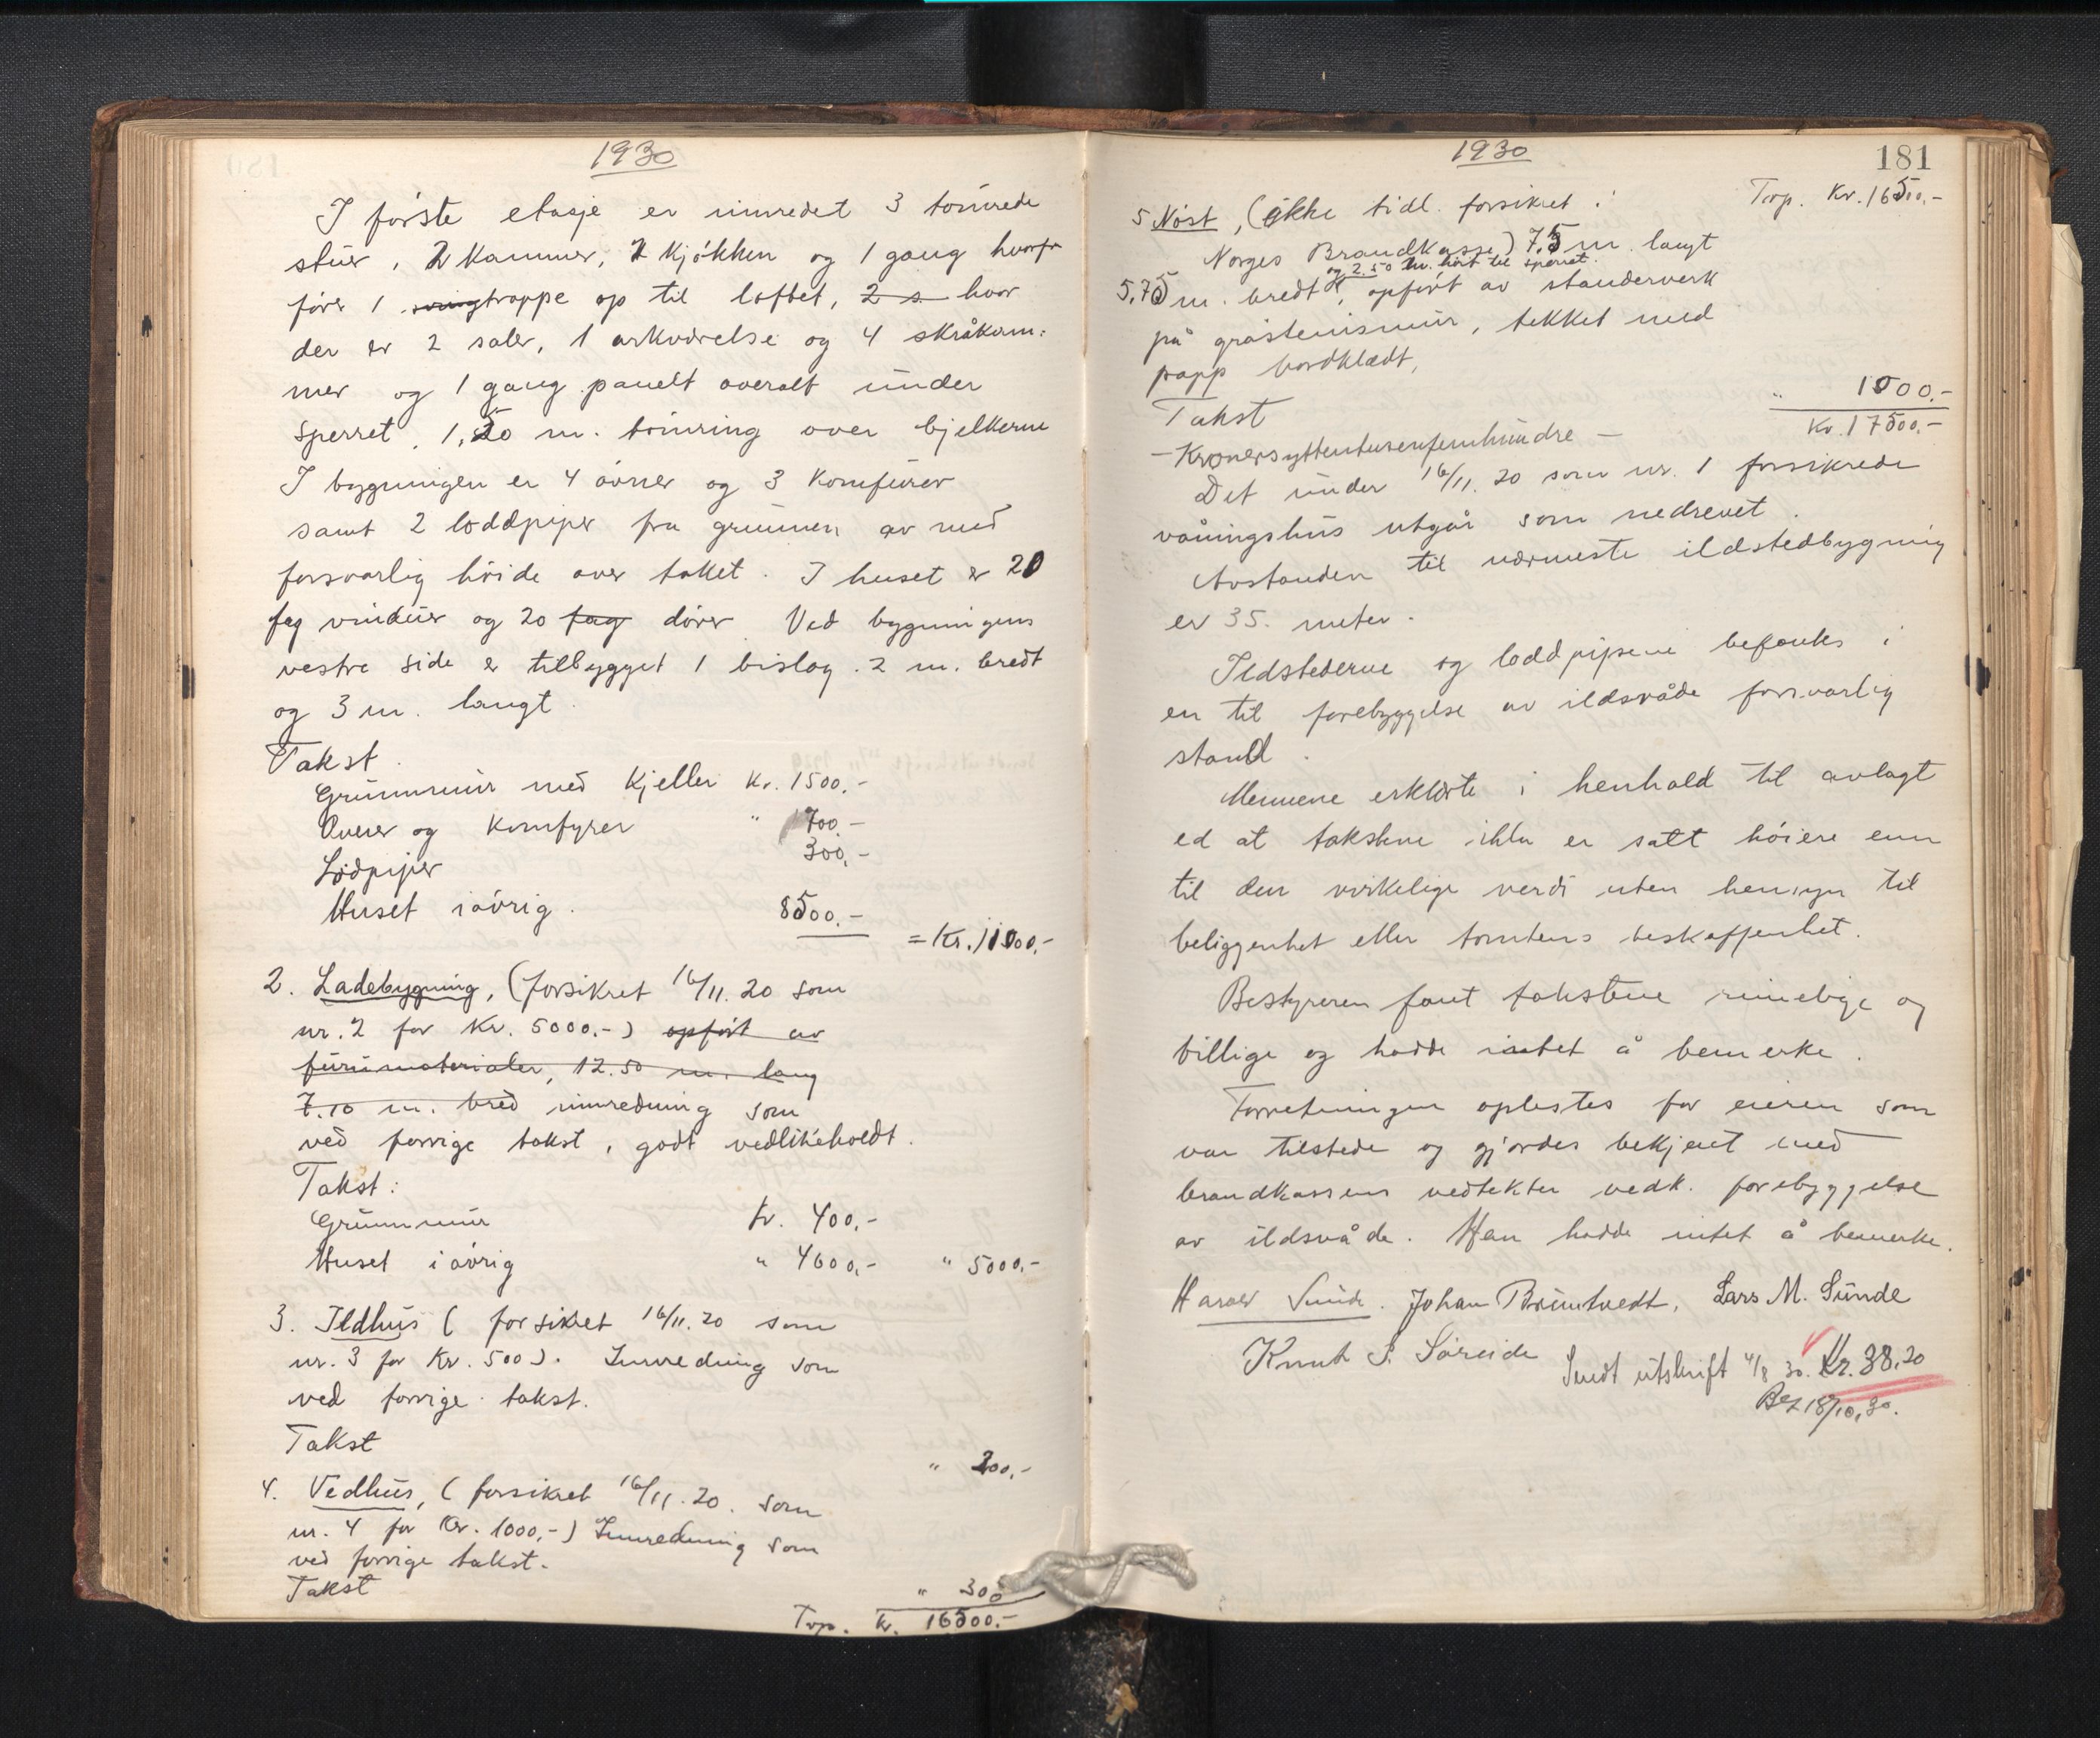 1930
I første etasje er innredet 3 tømrede
stuer, 2 kammer, 2 kjøkken og 1 gang hvorfr
fører 1 svingtrappe op til loftet, 2 s hvor
der er 2 saler, 1 arkværelse og 4 skråkam=
mer og 1 gang panelt overalt under
sperret. 1,50 m. tømring over bjelkerne
I bygningen er 4 ovner og 3 komfurer
samt 2 loddpiper fra grunnen av med
forsvarlig høide over taket. I huset er 20
fag vinduer og 20 fag dører. Ved bygningens
vestre side er tilbygget 1 bislag. 2 m. bredt
og 3 m. langt.
Takst.
Grunnmur med kjeller Kr. 1500,-
Ovner og komfyrer " 700,-
Lodpiper 300,-
Huset iøvrig. 8500,-
= Kr. 11000,-
2. Ladebygning, (forsikret 16/11. 20 som
nr. 2 for Kr. 5000.-) opført av
furumaterialer, 12.50 m. lang
7.10 m. bred innredning som
ved forrige takst, godt vedlikeholdt.
Takst:
Grunnmur Kr. 400,-
Huset iøvrig " 4600,- " 5000,-
3. Ildhus ( forsikret 16/11. 20 som
nr. 3 for Kr. 500). Innredning som
ved forrige takst.
Takst
" 200,-
4. Vedhus, ( forsikret 16/11. 20. som
nr. 4 for Kr. 1000,-) Innredning som
ved forrige takst.
Takst
" 300
Trp. Kr. 16500.-
1930
181
Trp. Kr. 16500,-
5 Nøst, (ikke tidl. forsikret i
Norges Brandkasse) 7,5 m. langt
og 2.50 m. høit til sperret.
5,75 m. bredt, opført av stenderverk
på gråstensmur, tekket med
papp bordklædt,
Takst
" 1000.-
Kr. 17500.-
- Kronersyttentusenfemhundre -
Det under 16/11. 20 som nr. 1 forsikrede
våningshus utgår som nedrevet.
Avstanden til nærmeste ildstedbygning
er 35. meter.
Ildstederne og loddpipene befantes i
en til forebyggelse av ildsvåde forsvarlig
stand.
Mennene erklærte i henhold til avlagt
ed at takstene ikke er satt høiere enn
til den virkelige verdi uten hensyn til
beliggenhet eller tomtens beskaffenhet.
Bestyreren fant takstene rimelige og
billige og hadde intet å bemerke.
Forretningen oplestes for eieren som
var tilstede og gjordes bekjent med
brandkassens vedtekter vedk. forebyggelse
av ildsvåde. Han hadde intet å bemerke.
Harald Sunde. Johan Bruntvedt, Lars M. Sunde
Knut S. Søreide
Sendt utskrift 4/8 30. Kr. 38,20
Bet 18/10. 30.